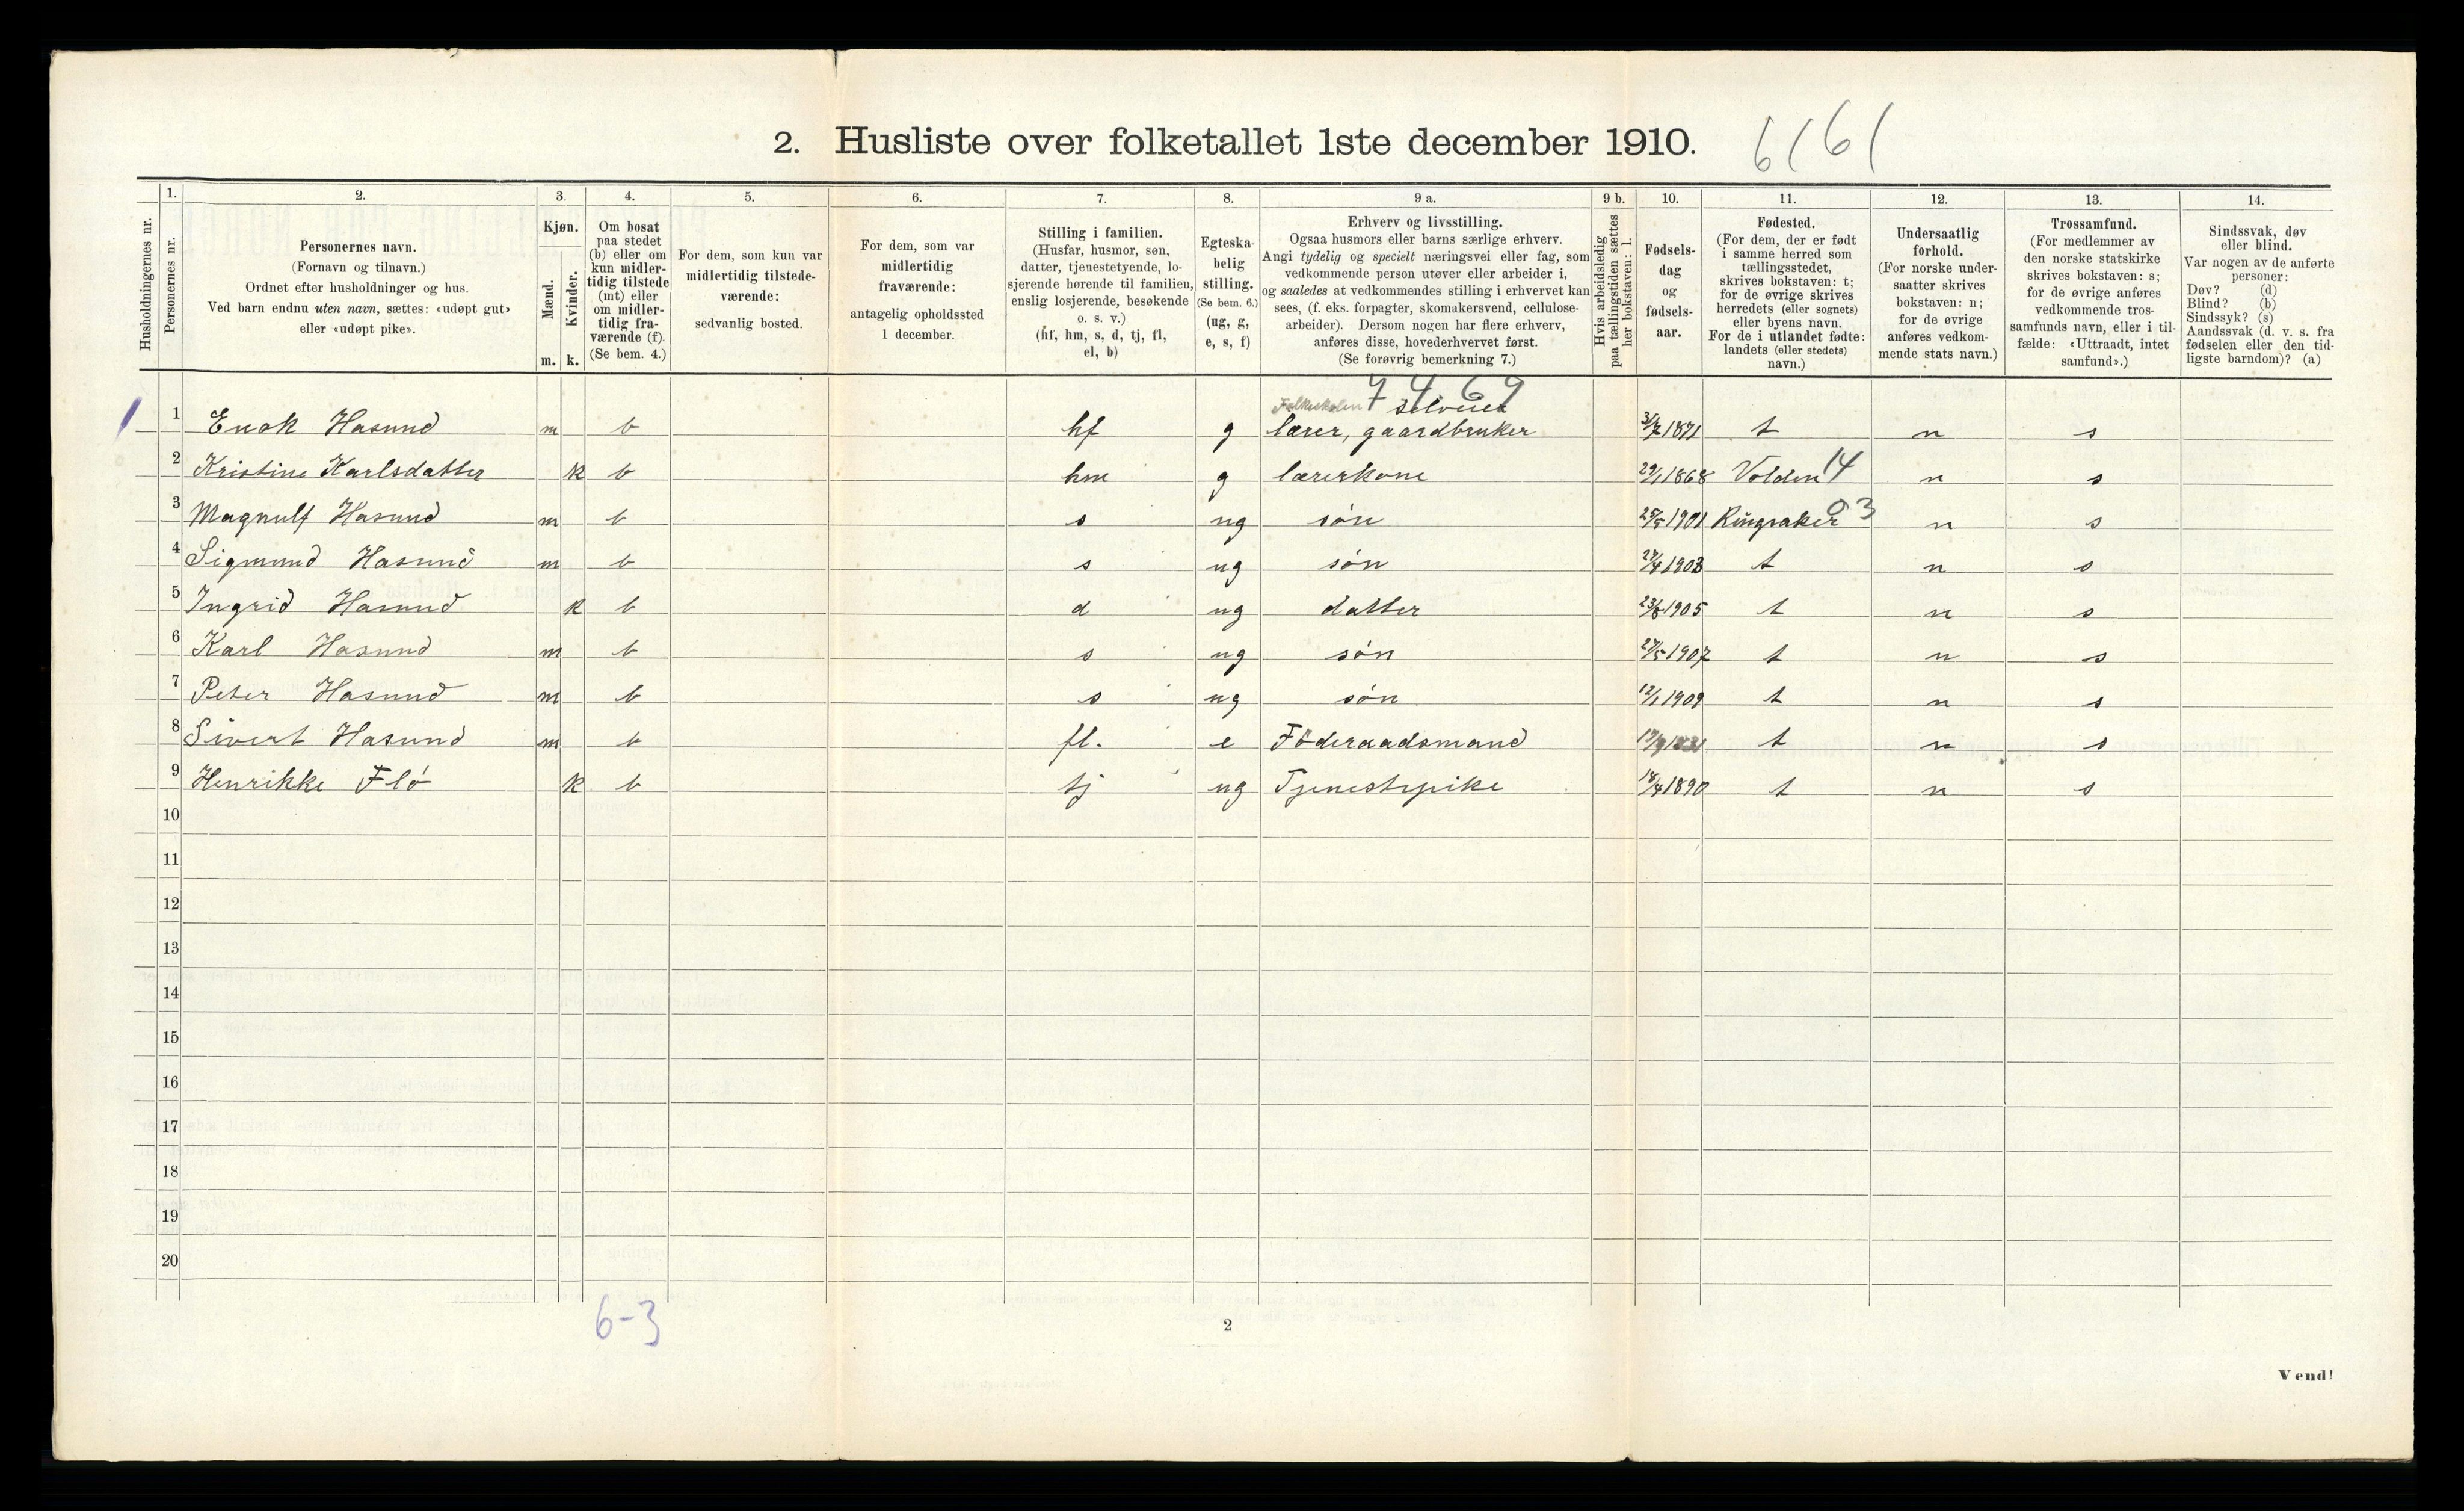 2. Husliste over folketallet 1ste december 1910. 6161
Husholdningernes nr.
1.
Personernes nr.
2.
Personernes navn.
(Fornavn og tilnavn.)
Ordnet efter husholdninger og hus.
Ved barn endnu uten navn, sættes: «udøpt gut»
eller «udøpt pike».
3.
Kjøn.
Mænd.
Kvinder.
m. k.
4.
Om bosat
paa stedet
(b) eller om
kun midler-
tidig tilstede
(mt) eller
om midler-
tidig fra-
værende (f).
(Se bem. 4.)
5.
For dem, som kun var
midlertidig tilstede-
værende:
sedvanlig bosted.
6.
For dem, som var
midlertidig
fraværende:
antagelig opholdssted
1 december.
7.
Stilling i familien.
(Husfar, husmor, søn,
datter, tjenestetyende, lo-
sjerende hørende til familien,
enslig losjerende, besøkende
o. s. v.)
(hf, hm, s, d, tj, fl,
el, b)
8.
Egteska-
belig
stilling.
(Se bem. 6.)
(ug, g,
e, s, f)
9 a.
Erhverv og livsstilling.
Ogsaa husmors eller barns særlige erhverv.
Angi tydelig og specielt næringsvei eller fag, som
vedkommende person utøver eller arbeider i,
og saaledes at vedkommendes stilling i erhvervet kan
sees, (f. eks. forpagter, skomakersvend, cellulose-
arbeider). Dersom nogen har flere erhverv,
anføres disse, hovederhvervet først.
(Se forøvrig bemerkning 7.)
9 b.
Hvis arbeidsledig
paa tællingstiden sættes
her bokstaven: l.
10.
Fødsels-
dag
og
fødsels-
aar.
11.
Fødested.
(For dem, der er født
i samme herred som
tællingsstedet,
skrives bokstaven: t;
for de øvrige skrives
herredets (eller sognets)
eller byens navn.
For de i utlandet fødte:
landets (eller stedets)
navn.)
12.
Undersaatlig
forhold.
(For norske under-
saatter skrives
bokstaven: n;
for de øvrige
anføres vedkom-
mende stats navn.)
13.
Trossamfund.
(For medlemmer av
den norske statskirke
skrives bokstaven: s;
for de øvrige anføres
vedkommende tros-
samfunds navn, eller i til-
fælde: «Uttraadt, intet
samfund».)
14.
Sindssvak, døv
eller blind.
Var nogen av de anførte
personer:
Døv? (d)
Blind? (b)
Sindssyk? (s)
Aandssvak (d. v. s. fra
fødselen eller den tid-
ligste barndom)? (a)
74.69
Folkeskolen selveier
1 1 Enok Hasund m b hf g lærer, gaardbruker 3/7 1871 t n s
2 Kristine Karlsdatter k b hm g lærerkone 29/1 1868 Volden 14 n s
3 Magnulf Hasund m b s ug søn 25/5 1901 Ringsaker 03 n s
4 Sigmund Hasund m b s ug søn 27/4 1903 t n s
5 Ingrid Hasund k b d ug datter 23/8 1905 t n s
6 Karl Hasund m b s ug søn 27/5 1907 t n s
7 Peter Hasund m b s ug søn 12/1 1909 t n s
8 Sivert Hasund m b fl. e Føderaadsmand t n s
9 Henrikke Flø k b tj ug Tjenestepike 18/4 1890 t n s
10
11
12
13
14
15
16
17
18
19
20
6-3
2
Vend!